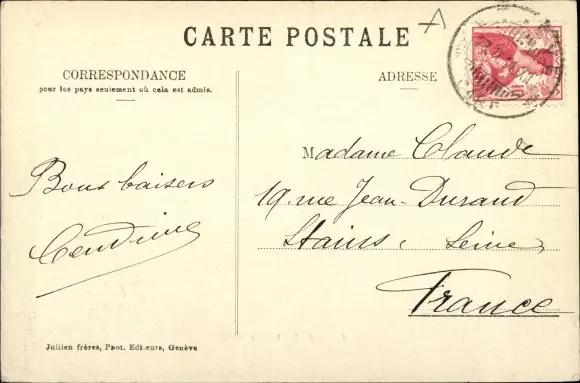 CARTE POSTALE
CORRESPONDANCE
pour les pays seulement où cela est admis.
ADRESSE
Madame Claude
19. rue Jean-Durand
Stains, Seine,
France
Bons baisers
Jullien frères, Phot. Editeurs, Genève